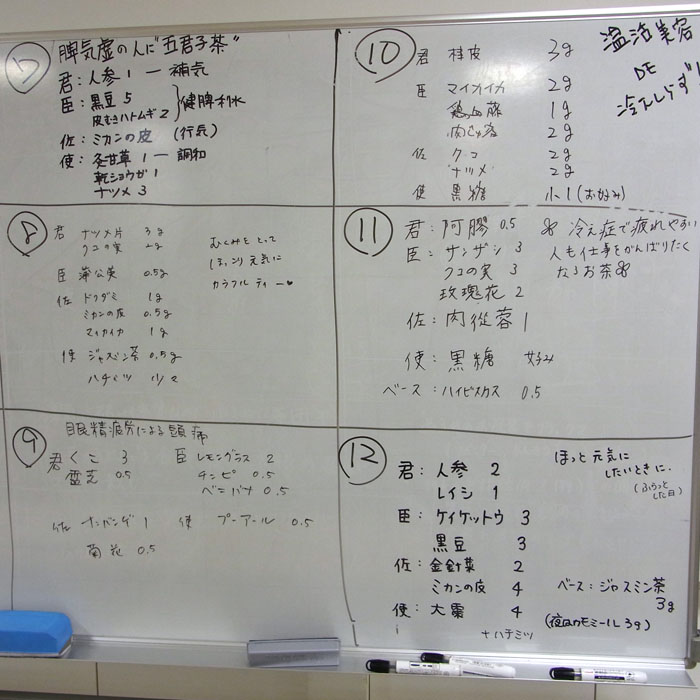 7 脾気虚の人に"五君子茶"
君:人参 1 — 補気
臣:黒豆 5
皮むきハトムギ 2 } 健脾利水
佐:ミカンの皮 (行気)
使:炙甘草 1 — 調和
乾ショウガ 1
ナツメ 3
8 君 ナツメ片 3g
クコの実 2g
臣 蒲公英 0.5g
佐 ドクダミ 1g
ミカンの皮 0.5g
マイカイカ 1g
使 ジャスミン茶 0.5g
ハチミツ 少々
むくみをとって
ほっこり元気に
カラフルティー
9 眼精疲労による頭痛
君 くこ 3
霊芝 0.5
臣 レモングラス 2
チンピ 0.5
ベニバナ 0.5
佐 ナンガンゲ 1
菊花 0.5
使 プーアール 0.5
10 君 桂皮 3g
臣 マイカイカ 2g
鶏血藤 1g
肉じゅ蓉 2g
佐 クコ 2g
ナツメ 2g
使 黒糖 小1(お好み)
温活美容
DE
冷えしらず
11 君:阿膠 0.5
臣:サンザシ 3
クコの実 3
玫瑰花 2
佐:肉従蓉 1
使:黒糖 好み
ベース:ハイビスカス 0.5
冷え症で疲れやすい
人も仕事をがんばりたく
なるお茶
12 君:人参 2
レイシ 1
臣:ケイケットウ 3
黒豆 3
佐:金針菜 2
ミカンの皮 4
使:大棗 4
+ハチミツ
ほっと元気に
したいときに.
(ふらっと
した日)
ベース:ジャスミン茶
3g
(夜はカモミール3g)